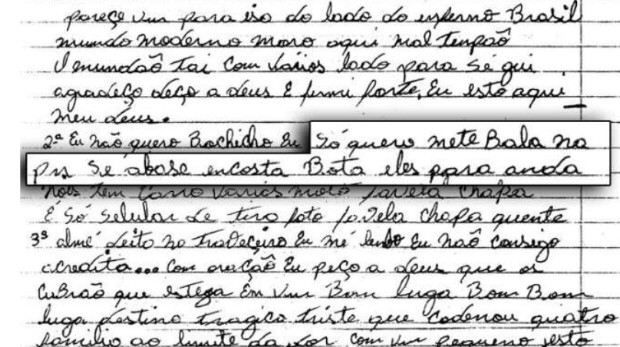 pareçe um para iso do lado do inferno Brasil
mundo moderno moro aqui mal tenpão
O mundaõ tai com vários lado para se gui
agradeço deço a deus E firmi forte, Eu estõ aqui
meu deus.
2ª Eu não quero Bochicho Eu Só quero mete Bala na
pis Se abase encosta Bota eles para anda
nois tem Carro vários moto favela chapa
É Só Selular de tira foto favela chapa quente
3ª almé deito no Traveceiro Eu mé lenbo Eu Naõ consigo
acredita... Com oraçaõ Eu peço a deus que os
que estega Em um Bom luga Bom Bom
luga destino tragico triste que quatro
familio ao limite da dor com um pequeno jesto